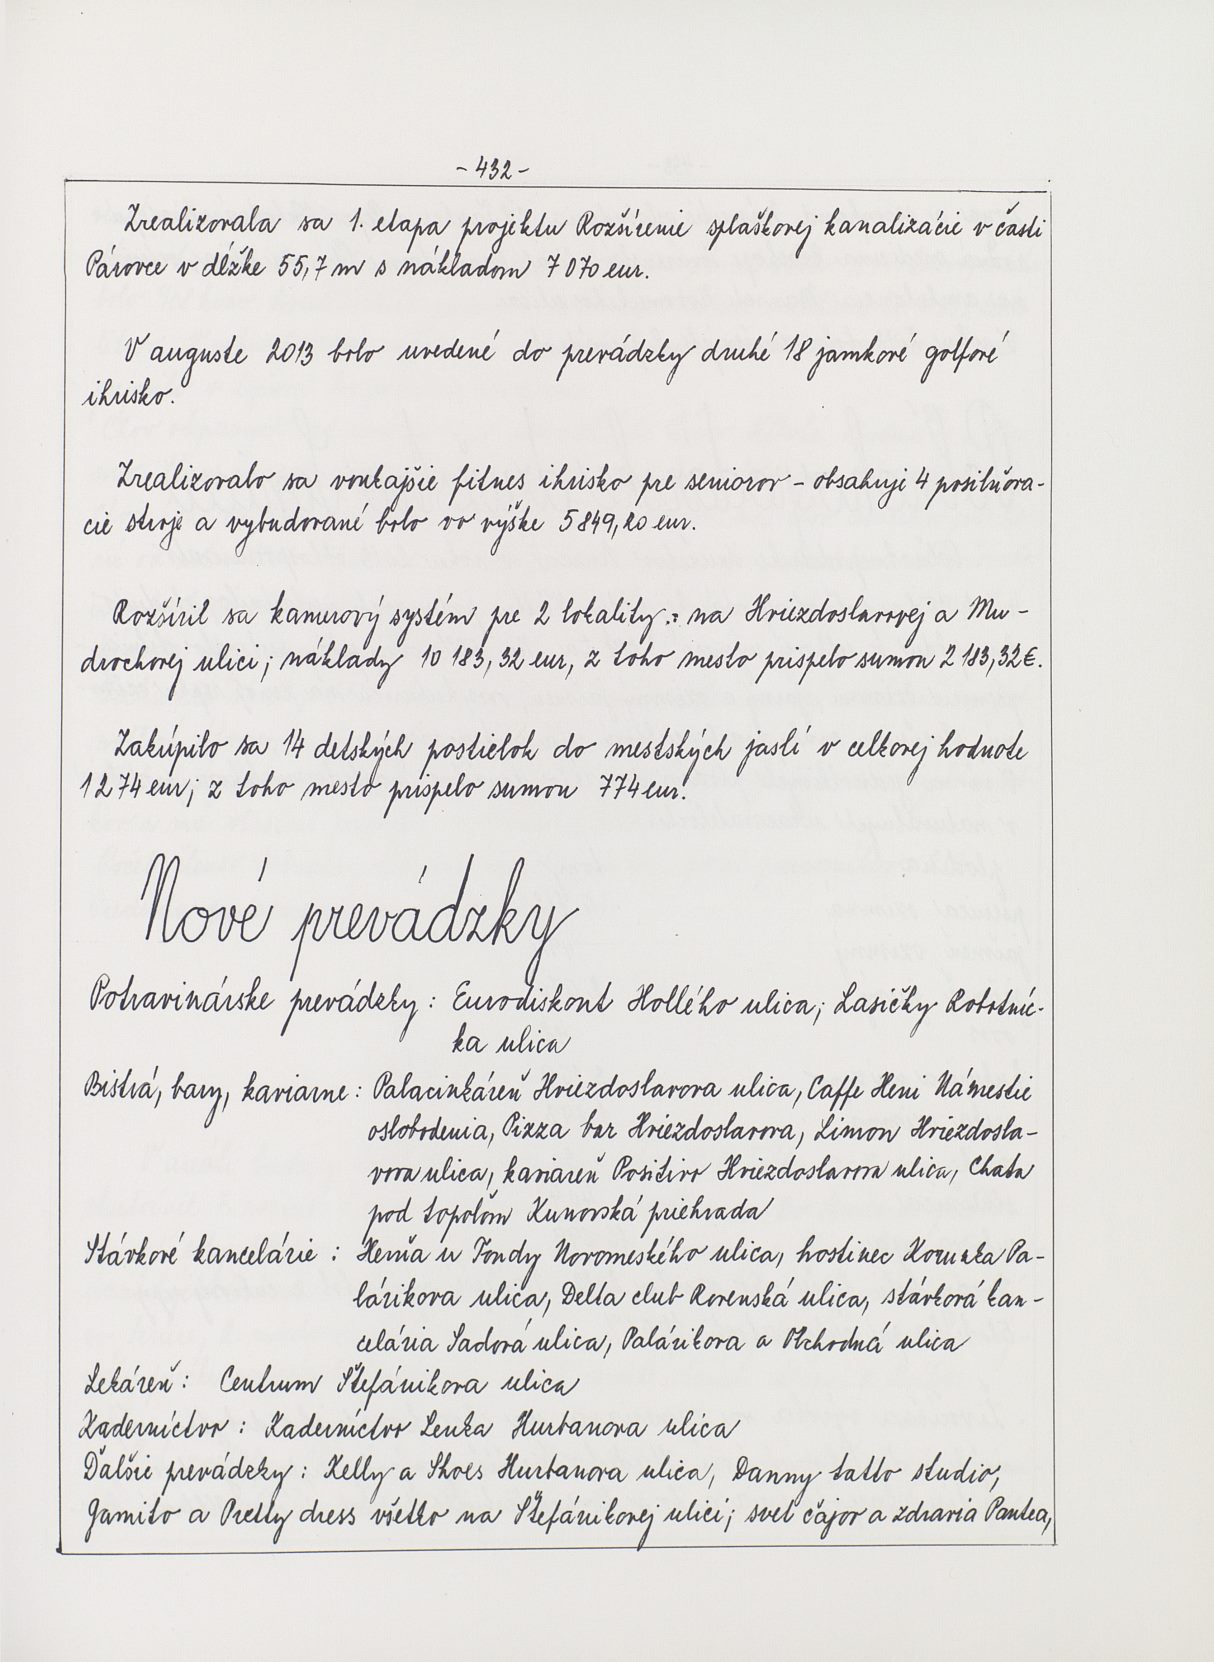 - 432 -
Zrealizovala sa 1. etapa projektu Rozšírenie splaškovej kanalizácie v časti
Párovce v dĺžke 55,7 m s nákladom 7 070 eur.
V auguste 2013 bolo uvedené do prevádzky druhé 18 jamkové golfové
ihrisko.
Zrealizovalo sa vonkajšie fitnes ihrisko pre seniorov - obsahuje 4 posilňova-
cie stroje a vybudované bolo vo výške 5 849,20 eur.
Rozšíril sa kamerový systém pre 2 lokality : na Hviezdoslavovej a Mu-
drochovej ulici; náklady 10 183,32 eur, z toho mesto prispelo sumou 2 183,32 €.
Zakúpilo sa 14 detských postieľok do mestských jaslí v celkovej hodnote
1 274 eur; z toho mesto prispelo sumou 774 eur.
Nové prevádzky
Potravinárske prevádzky : Eurodiskont Hollého ulica; Lasičky Robotníc-
ka ulica
Bistrá, bary, kaviarne : Palacinkáreň Hviezdoslavova ulica, Caffe Heni Námestie
oslobodenia, Pizza bar Hviezdoslavova, Limon Hviezdosla-
vova ulica, kaviareň Positivo Hviezdoslavova ulica, Chata
pod topoľom Kunovská priehrada
Stávkové kancelárie : Herňa u Fondy Novomeského ulica, hostinec Korunka Pa-
lárikova ulica, Delta club Rovenská ulica, stávková kan-
celária Sadová ulica, Palárikova a Obchodná ulica
Lekáreň : Centrum Štefánikova ulica
Kaderníctvo : Kaderníctvo Lenka Hurbanova ulica
Ďalšie prevádzky : Kelly a Shoes Hurbanova ulica, Danny tatto studio,
Jamito a Pretty dress všetko na Štefánikovej ulici; svet čajov a zdravia Pantea,